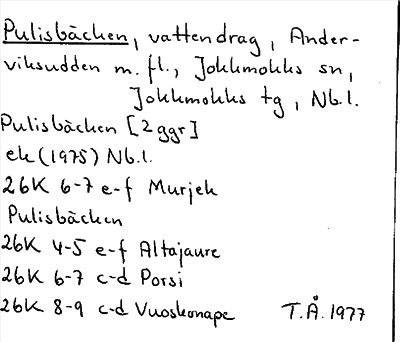 Pulisbäcken, vattendrag, Ander-
viksudden m. fl., Jokkmokks sn,
Jokkmokks tg, Nb.l.
Pulisbäcken [2 ggr]
ek (1975) Nb.l.
26K 6-7 e-f Murjek
Pulisbäcken
26K 4-5 e-f Altajaure
26K 6-7 c-d Porsi
26K 8-9 c-d Vuoskonape T.Å. 1977